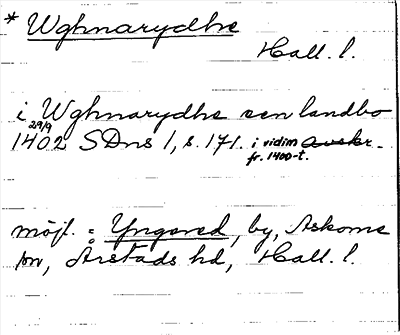 * Wghnarydhe
Hall. l.
i Wghnarydhe een landbo
29/9
1402 SDns 1, s. 171. i vidim avskr.
fr. 1400-t.
möjl. = Yngered, by, Askome
sn, Årstads hd, Hall. l.